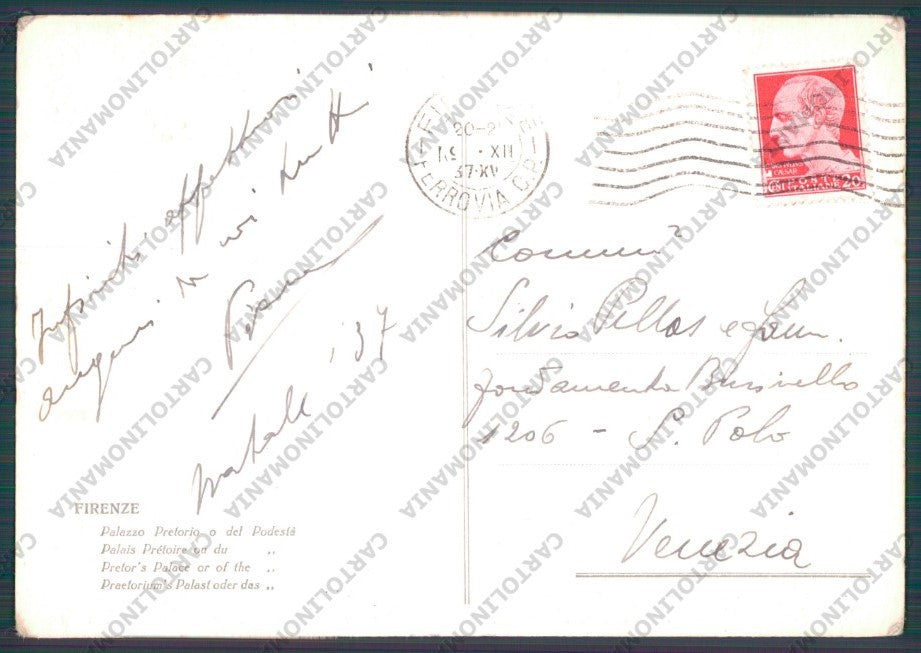 Infiniti affettuosi
auguri a voi tutti
Natale '37
FIRENZE
Palazzo Pretorio o del Podestà
Palais Prétoire ou du „
Pretor's Palace or of the „
Praetorium's Palast oder das „
20-21
XII
37·XV
FERROVIA
CAESAR
20
Silvio Pillos e
fondamenta Businello
1206 - S. Polo
Venezia
CARTOLINOMANIA